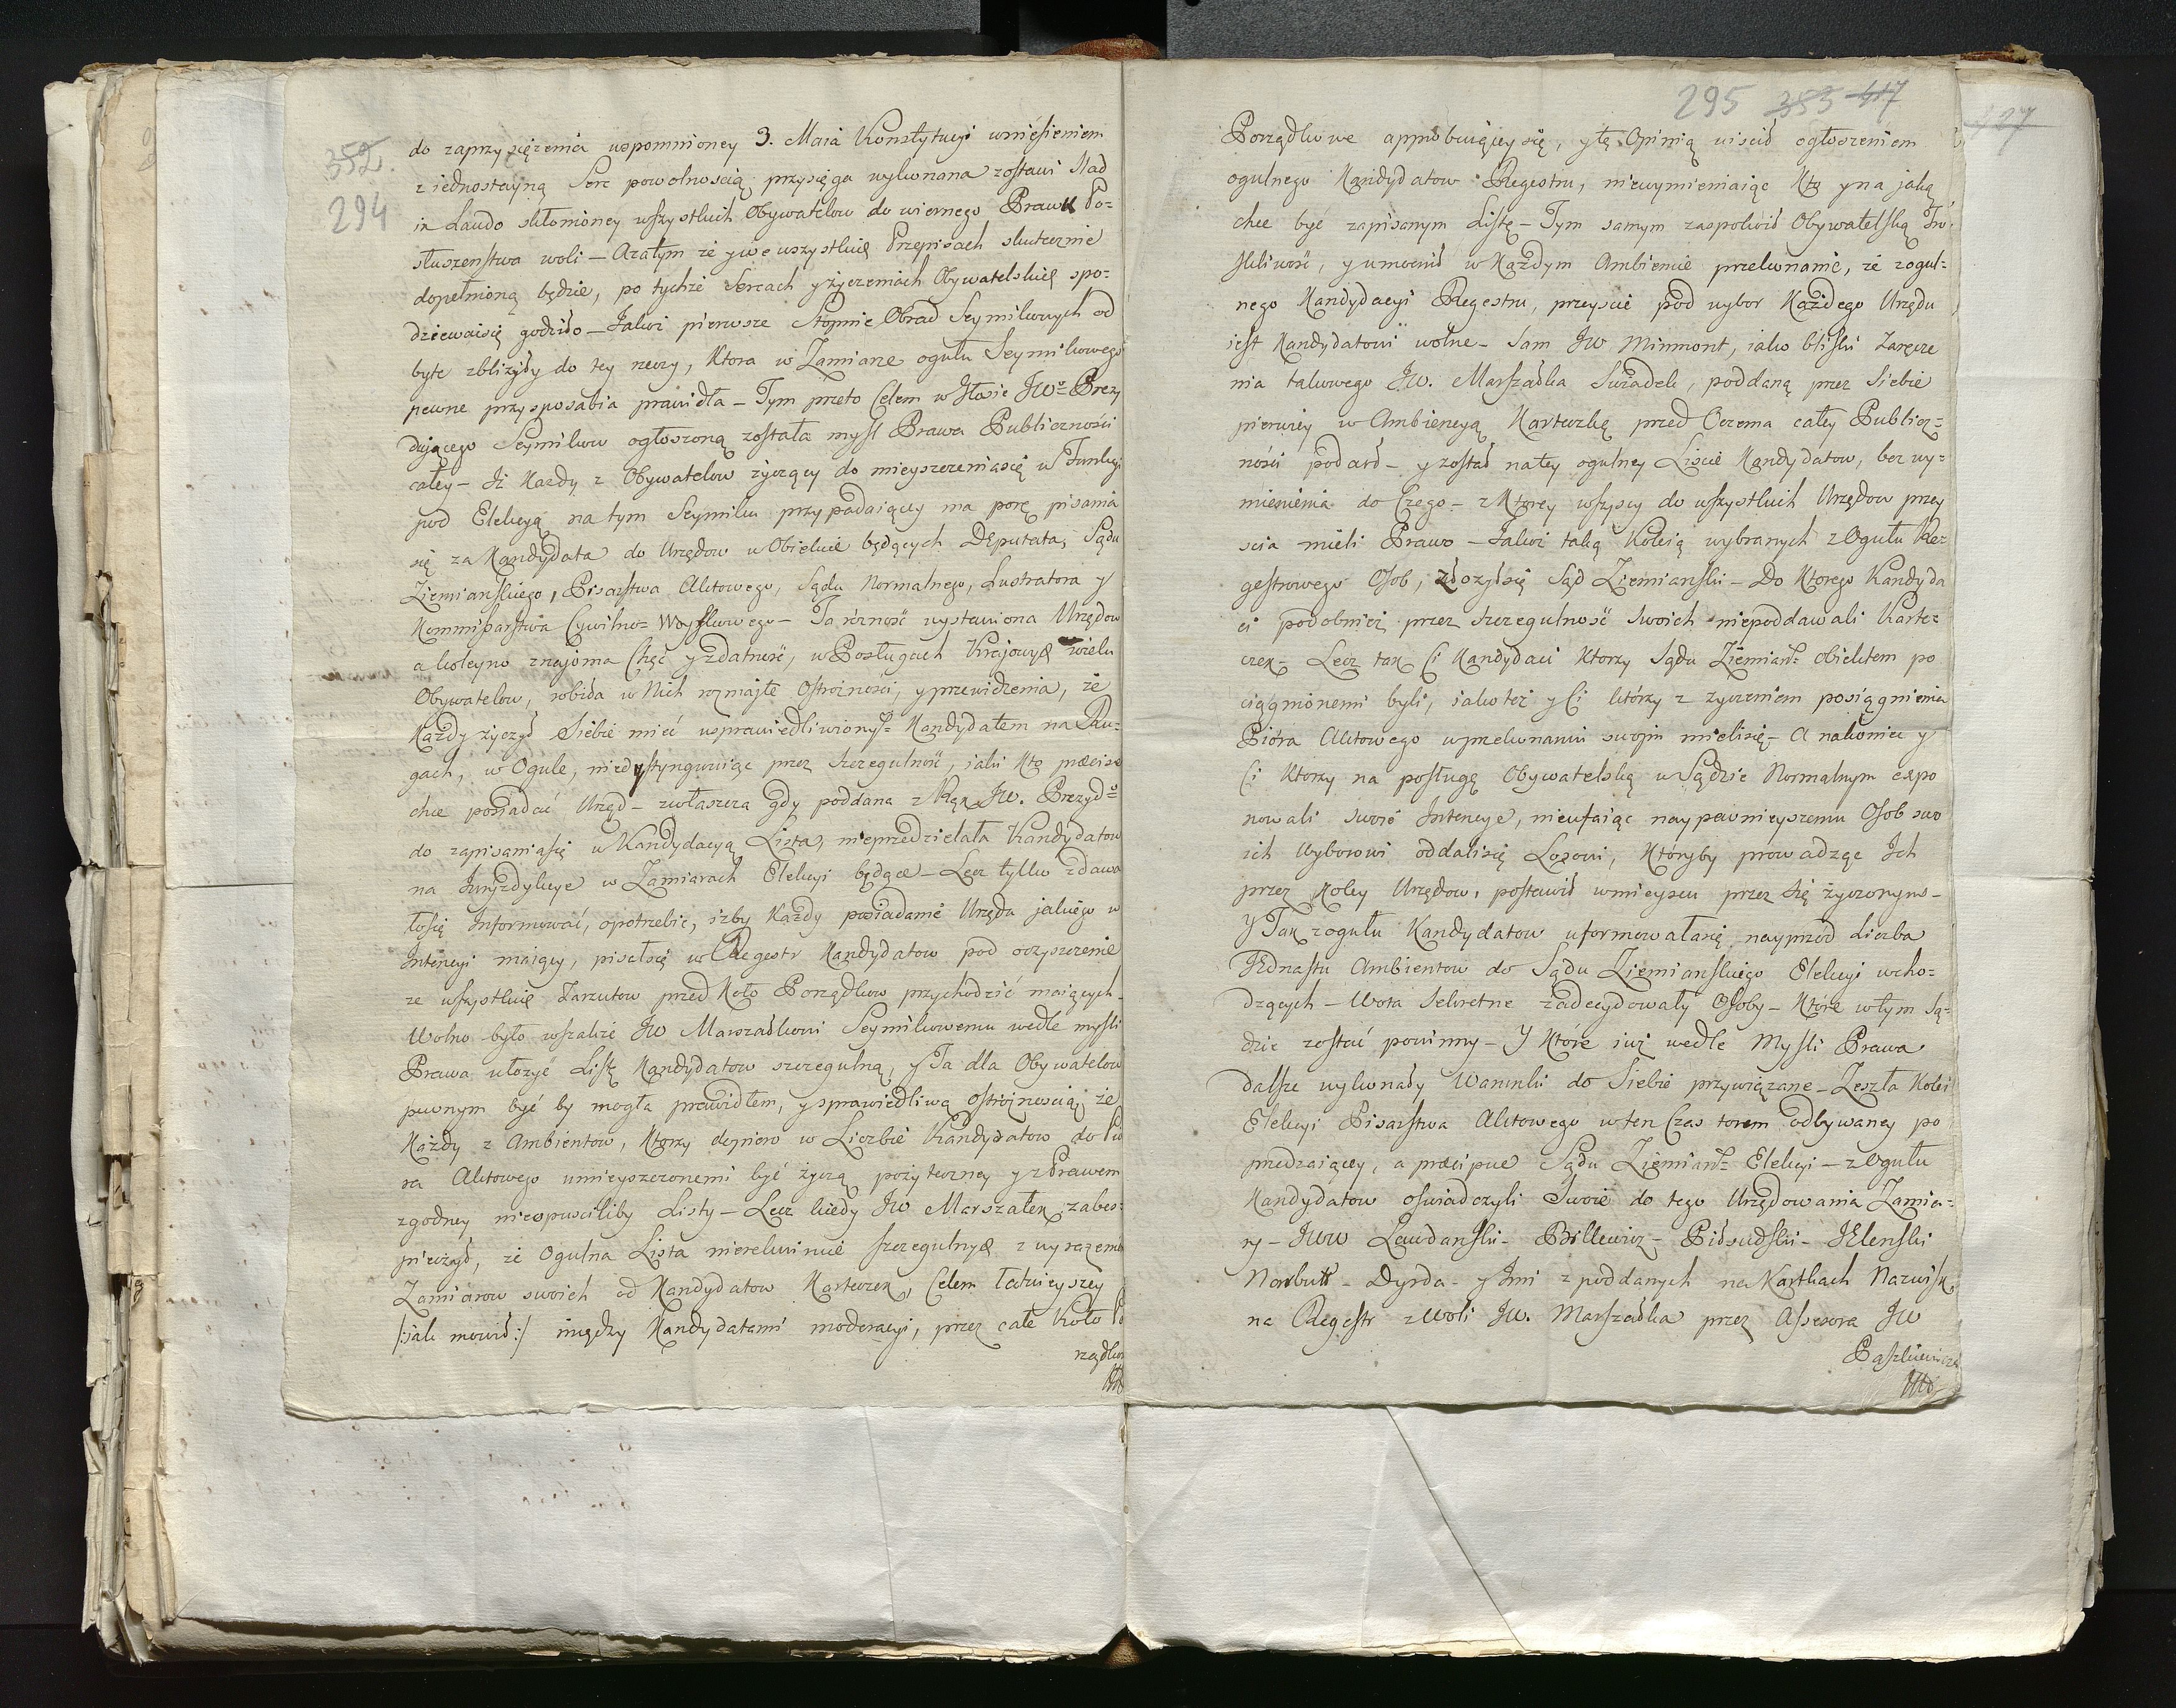 352.
294
do zaprzysiężenia uspomnioney 3. Maia Konstytucyi wniesieniem
z iednostayną Serc powolnoscią przysięga wykonana zostawi Slad
in Laudo skłonioney wszystkich Obywatelow do wiernego Prawu Po=
słuszenstwa woli — Azatym że y we wszystkich Przepisach skutecznie
dopełnioną będzie, po tychże Sercach y życzeniach Obywatelskich spo=
dziewaćsię godziło — Jakoż pierwsze Stopnie Obrad Seymikowych od
byte zbliżyły do tey rzeczy, Ktora w Zamiarze ogułu Seymikowego
pewne przysposabia prawidła — Tym przeto Celem w Głosie JWo Prezy
dującego Seymikow ogłoszoną została mysl Prawa Publicznosci
całey — Iż Kazdy z Obywatelow życzący do mieyszczeniasię w Funkcyi
pod Elekcyą na tym Seymiku przypadaiącey ma porę pisania
się za Kandydata do Urzędow w Obiekcie będących Deputata, Sądu
Ziemianskiego, Pisarstwa Aktowego, Sądu Normalnego, Lustratora y
Kommissarstwa Cywilno= Woyskowego — Ta rożność wystawiona Urzędow
a kolleyno znajoma Chęć y zdatność, w Posługach Krajowych wielu
Obywatelow, robiła w Nich rozmajte Ostrożnosci, y przewidzenia, że
Każdy życzył Siebie mieć usprawiedliwionym Kandydatem na Ran=
gach, w Ogule, niedystyngwuiąc przez szczegulność, iaki Kto præcise
chce posiadać Urząd — zwłaszcza gdy poddana z Rąk JW. Prezyd=o
do zapisaniasię w Kandydacyą Lista, nieprzedzielała Kandydatow
na Juryzdykcye w Zamiarach Elekcyi będące — Lecz tylko zdawa
łosię Informować, opotrzebie, iżby Każdy posiadanie Urzędu jakiego w
Intencyi maiący, pisałsię w Regestr Kandydatow pod oczyszczenie
ze wszystkich Zarzutow przed Koło Porządkow przychodzić maiących —
Wolno było wszakże JW Marszałkowi Seymikowemu wedle mysli
Prawa ułożyć Listę Kandydatow szczegulną, y Ta dla Obywatelow
pewnym być by mogła prawidłem, y sprawiedliwą ostrożnoscią, że
Każdy z Ambientow, Ktorzy dopiero w Liczbie Kandydatow do Pió
ra Aktowego umieyszczonemi być życzą pożyteczney y z Prawem
zgodney nieopusciliby Listy — Lecz kiedy JW Marszałek zabes=
pieczył, że Ogulna Lista nieexkwiruie szczegulnych z wyrazem
Zamiarow swoich od Kandydatow Karteczek, Celem łatwieyszey
/:jak mowił:/ między Kandydatami moderacyi, przez całe Koło Po
rządko
295 353 417
427
Porządkowe approbuiącey się, y tę Opinią uiscił ogłoszeniem
ogulnego Kandydatow Regestru, niewymieniaiąc Kto y na jaką
chce być zapisanym Listę — Tym samym zaspokoił Obywatelską Tro=
skliwość, y umocnił w Każdym Ambiencie przekonanie, że zogul=
nego Kandydacyi Regestru, przeyscie pod wybor Każdego Urzędu
iest Kandydatowi wolne — Sam JW Minmont, iako bliski Zaręcze
nia takowego JW. Marszałka Swiadek, poddaną przez Siebie
pierwiey w Ambiencyą Karteczkę przed Oczema całey Publicz=
ności podarł — y został na tey ogulney Liscie Kandydatow, bez wy=
mienienia do Czego — z Ktorey wszyscy do wszystkich Urzędow przey
scia mieli Prawo — Jakoż taką Koleią wybranych z Ogułu Re=
gestrowego Osob, złożyłsię Sąd Ziemianski — Do Ktorego Kandyda
ci podobnież przez szczegulność swoich niepoddawali Karte=
czek — Lecz tak Ci Kandydaci Ktorzy Sądu Ziemian= Obiektem po
ciągnionemi byli, iako też y Ci którzy z życzeniem posiągnienia
Pióra Aktowego w przekonaniu swoim mielisię — A nakoniec y
Ci Ktorzy na posługę Obywatelską w Sądzie Normalnym expo
nowali swoie Intencye, nieufaiąc naypewnieyszemu Osob swo
ich Wyborowi oddalisię Losowi, Któryby prowadząc Ich
przez Koley Urzędow, postawił w mieyscu przez Się życzonym —
Y Tak z ogułu Kandydatow uformowałasię nayprzod Liczba
JEdnastu Ambientow do Sądu Ziemianskiego Elekcyi wcho=
dzących — Wota Sekretne zadecydowały Osoby — Które w tym Są=
dzie zostać powinny — Y Które iuż wedle Mysli Prawa
dalsze wykonały Warunki do Siebie przywiązane — Zeszła Kolei
Elekcyi Pisarstwa Aktowego w ten Czas torem odbywaney po
przedzaiącey, a præcipue Sądu Ziemian= Elekcyi — z Ogułu
Kandydatow oswiadczyli Swoie do tego Urzędowania Zamia=
ry — JWW Laudanski — Billewicz — Piłsudski — JElenski
Narbutt — Dyrda — y Inni z poddanych na Kartkach Nazwisk
na Regestr z Woli JW. Marszałka przez Assesora JW
Paszkiewicza